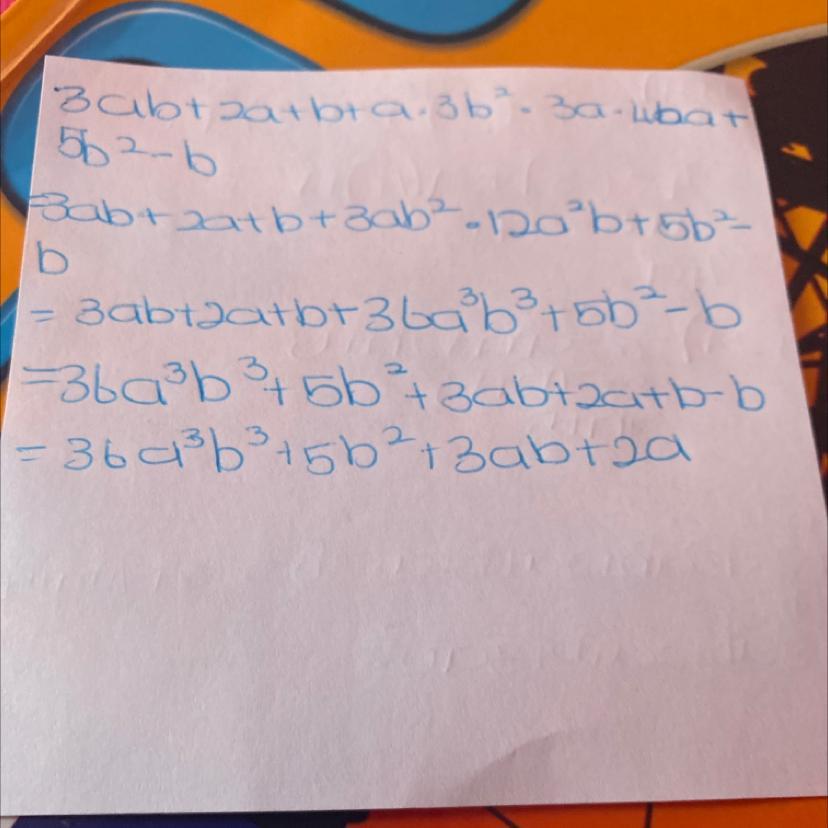 3ab+2a+b+a·3b²·3a·4ba+
5b²-b
=3ab+2a+b+3ab²·12a²b+5b²-
b
= 3ab+2a+b+36a³b³+5b²-b
=36a³b³+5b²+3ab+2a+b-b
= 36a³b³+5b²+3ab+2a